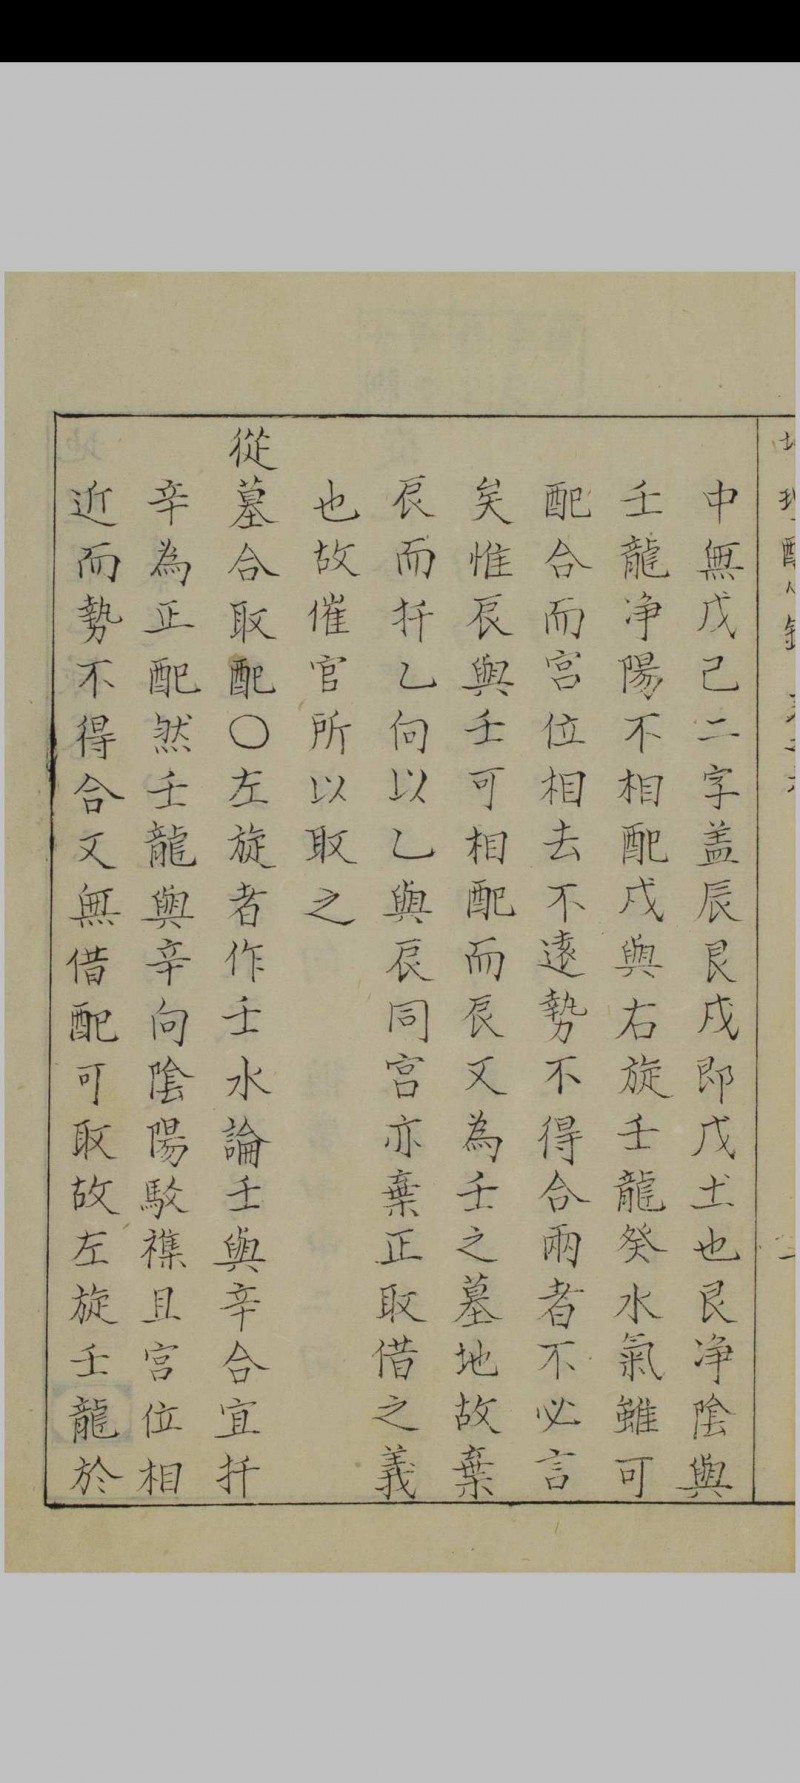 中無戊己二字盖辰艮戌即戊土也艮净陰與
壬龍净陽不相配戌與右旋壬龍癸水氣雖可
配合而宮位相去不遠勢不得合兩者不必言
矣惟辰與壬可相配而辰又為壬之墓地故棄
辰而扦乙向以乙與辰同宮亦棄正取借之義
也故催官所以取之
從墓合取配○左旋者作壬水論壬與辛合宜扦
辛為正配然壬龍與辛向陰陽駁襍且宮位相
近而勢不得合又無借配可取故左旋壬龍於